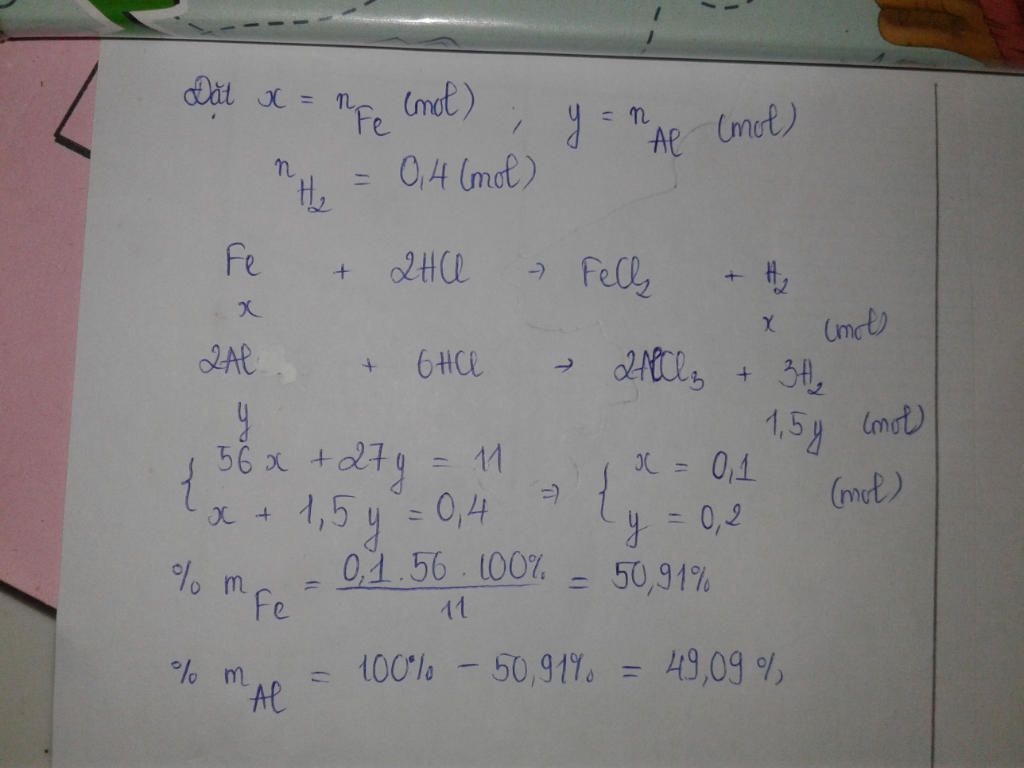 Đặt x = n Fe (mol) , y = n Al (mol)
n H2 = 0,4 (mol)
Fe + 2HCl → FeCl2 + H2
x x (mol)
2Al + 6HCl → 2AlCl3 + 3H2
y 1,5y (mol)
{ 56x + 27y = 11 ⇒ { x = 0,1 (mol)
x + 1,5y = 0,4 y = 0,2
% m Fe = 0,1 . 56 . 100% / 11 = 50,91%
% m Al = 100% - 50,91% = 49,09%